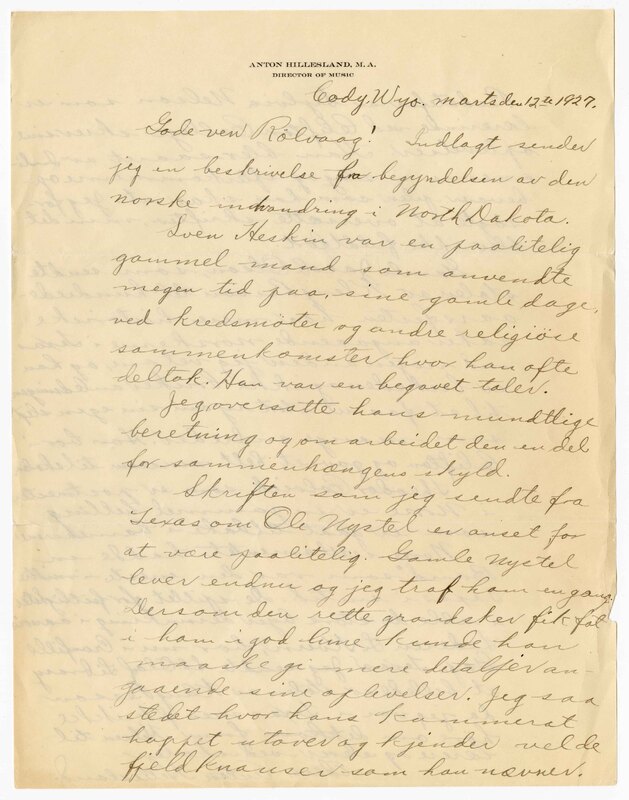 ANTON HILLESLAND, M.A.
DIRECTOR OF MUSIC
Cody, Wyo. marts den 12te 1927.
Gode ven Rölvaag! Indlagt sender
jeg en beskrivelse fra begyndelsen av den
norske indvandring i North Dakota.
Sven Heskin var en paalitelig
gammel mand som anvendte
megen tid paa, sine gamle dage,
ved kredsmöter og andre religiöse
sammenkomster hvor han ofte
deltok. Han var en begavet taler.
Jeg oversatte hans mundtlige
beretning og omarbeidet den en del
for sammenhængens skyld.
Skriften som jeg sendte fra
Texas om Ole Nystel er anset for
at være paalitelig. Gamle Nystel
lever endnu og jeg traf ham engang.
Dersom den rette grandsker fik fat
i ham i god lune kunde han
maaske gi mere detaljer an-
gaaende sine oplevelser. Jeg saa
stedet hvor hans kammerat
hoppet utover og kjender vel de
fjeldknauser som han nævner.